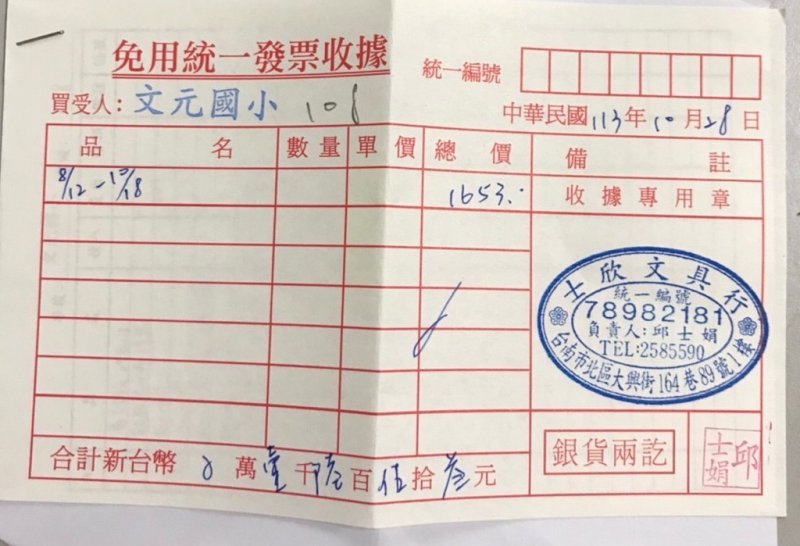 免用統一發票收據
統一編號
買受人：文元國小 108
中華民國113年10月28日
品名 數量 單價 總價 備註
8/12－10/18 1653.-
收據專用章
士欣文具行
統一編號
78982181
負責人:邱士娟
TEL:2585590
台南市北區大興街164巷89號1樓
合計新台幣 0萬壹千陸百伍拾叁元
銀貨兩訖
邱士娟